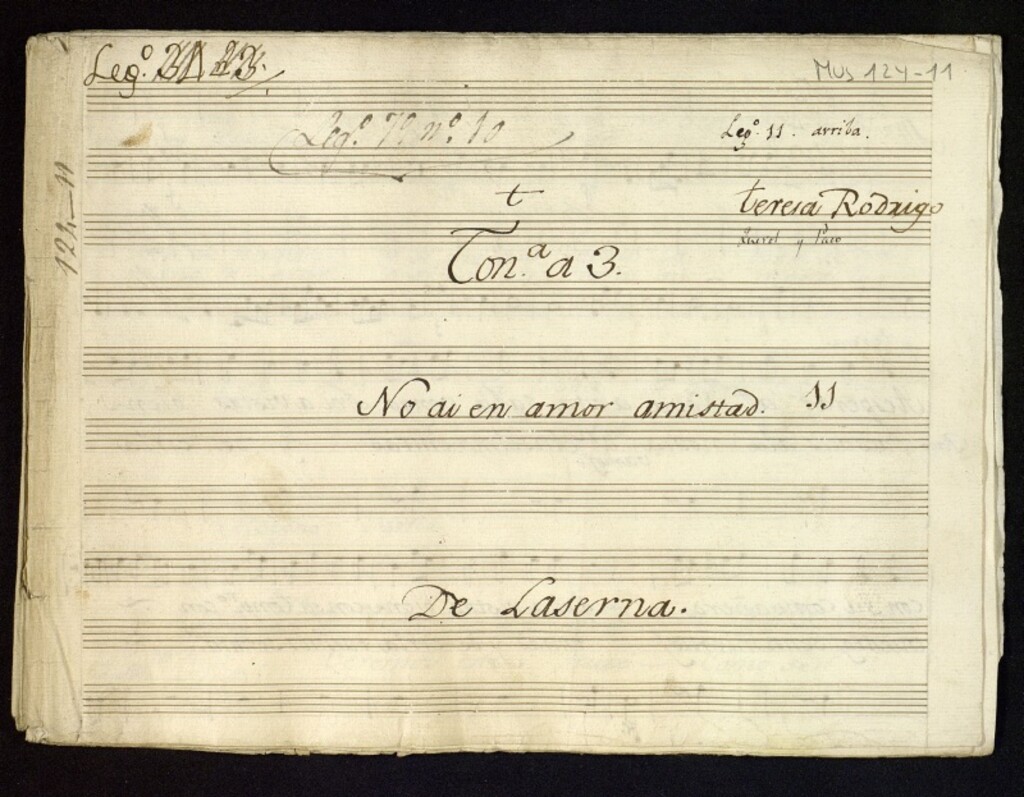 Leg.º
Mus 124-11
Leg.º 7º nº. 10
Leg.º 11. arriba.
124-11
t
teresa Rodrigo
y Paco
Ton.ª a 3.
No ai en amor amistad. 11
De Laserna.